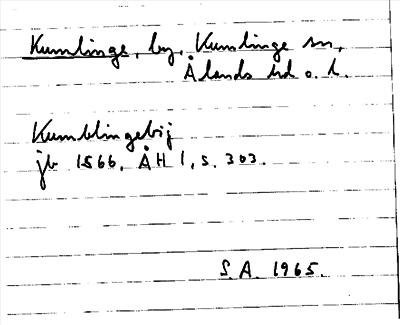 Kumlinge, by, Kumlinge sn,
Ålands hd o. l.
Kumblingebij
jb 1566, ÅH 1, s. 303.
S.A. 1965.